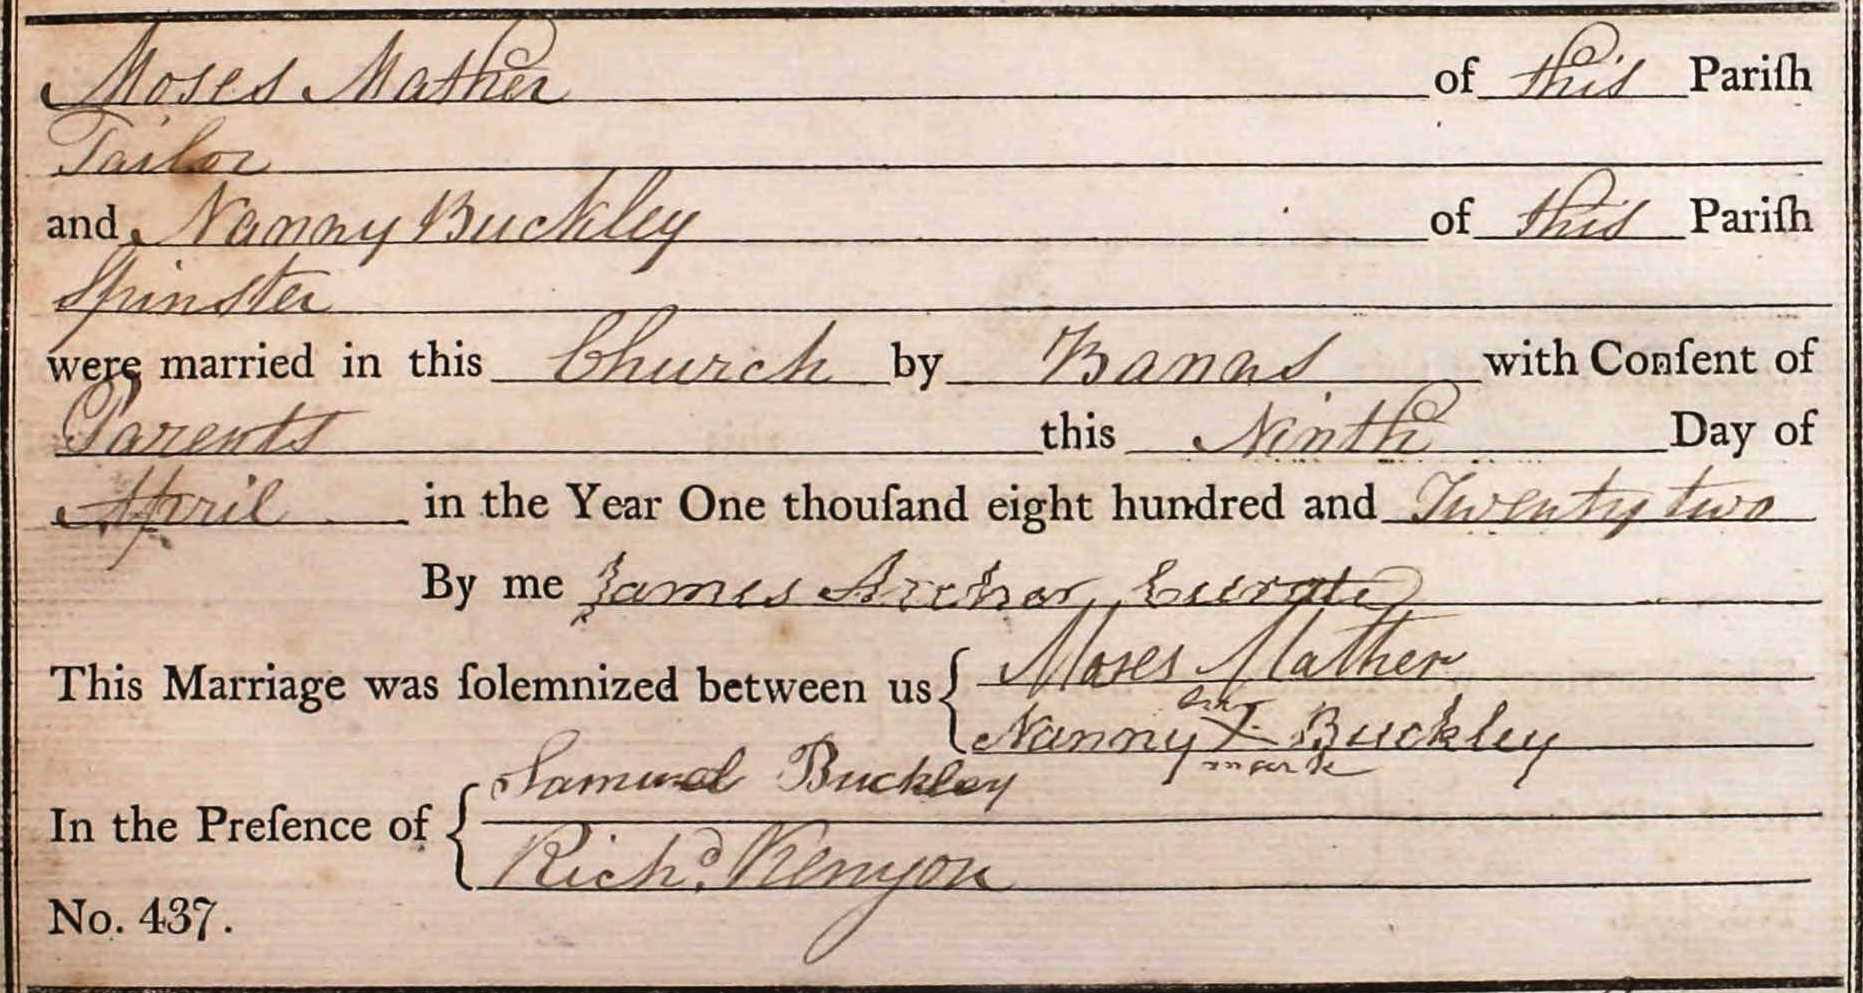 Moses Mather of this Pariſh
Tailor
and Nanny Buckley of this Pariſh
Spinster
were married in this Church by Banns with Conſent of
Parents this Ninth Day of
April in the Year One thouſand eight hundred and Twenty two
By me James Archer, Curate
This Marriage was ſolemnized between us { Moses Mather
her
Nanny X Buckley
mark
In the Preſence of { Samuel Buckley
Richd. Kenyon
No. 437.